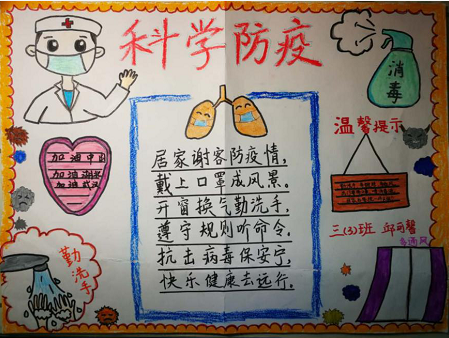 科学防疫
消毒
加油中国
加油湖北
加油武汉
温馨提示
居家谢客防疫情,
戴上口罩成风景。
开窗换气勤洗手,
遵守规则听命令。
抗击病毒保安宁,
快乐健康去远行.
三(3)班
勤洗手